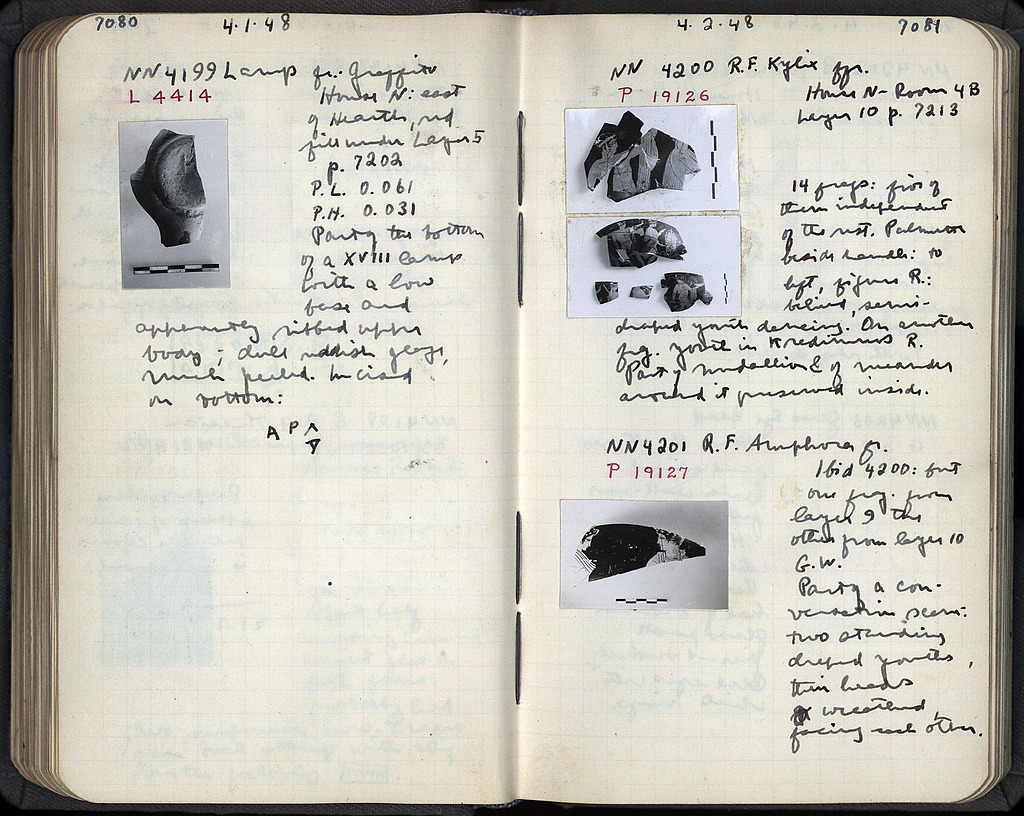 7080
4.1.48
NN 4199 Lamp fr. Graffito
L 4414
House N: east
of Hearth, red
fill under Layer 5
p. 7202
P.L. 0.061
P.H. 0.031
Part of the bottom
of a XVIII lamp
with a low
base and
apparently ribbed upper
body; dull reddish glaze,
much peeled. Incised
on bottom:
A P
4.2.48
7081
NN 4200 R.F. Kylix frr.
P 19126
House N - Room 4B
Layer 10 p. 7213
14 frags: five of
them independent
of the rest. Palmette
beside handle: to
left, figure R.:
behind, semi-
draped youth dancing. On another
frg. youth in Kredimnos R.
Part of medallion & of meander
around it preserved inside.
NN 4201 R.F. Amphora fr.
P 19127
Ibid 4200: but
one frag. from
layer 9 the
other from layer 10
G.W.
Part of a con-
versation scene:
two standing
draped youths,
their heads
wreathed,
facing each other.